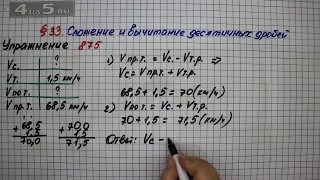 4 па 5.ru
§33. Сложение и вычитание десятичных дробей
Упражнение 875
Vс. ?
Vт. 1,5 км/ч
Vпот. ?
Vпр.т. 68,5 км/ч
+ 68,5
1,5
70,0
+ 70,0
1,5
71,5
1) Vпр.т. = Vс. - Vт.р. ⇒
Vс. = Vпр.т. + Vт.р.
68,5 + 1,5 = 70 (км/ч)
2) Vпот. = Vс. + Vт.р.
70 + 1,5 = 71,5 (км/ч)
Ответ: Vс -